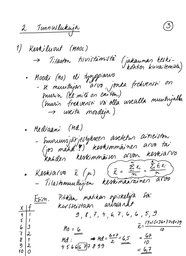 2. Tunnuslukuja
3
1) Keskiluvut (mnc)
→ Tilaston tiivistämistä (jakauman keski-
kohdan kuvaamista)
• Moodi (Mo) eli tyyppiarvo
- x muuttujan arvo, jonka frekvenssi on
suurin (eli mitä on eniten)
(suurin frekvenssi voi olla usealla muuttujalla
→ useita moodeja)
• Mediaani (Md)
- Suuruusjärjestykseen asetetun aineiston
keskimmäinen arvo tai
kahden keskimmäisen arvon keskiarvo
• Keskiarvo x̄ (μ)
- Tilastomuuttujan keskimääräinen arvo
Esim. matikan opiskelija sai
kursseistaan arvosanat
9, 8, 7, 4, 6, 7, 6, 6, 5, 9
x f
4 1
5 1
6 3
7 2
8 1
9 2
10 0
Mo = 6
Md:
4 5 6 6 6 7 7 8 9 9
= 6,5
= 6,7